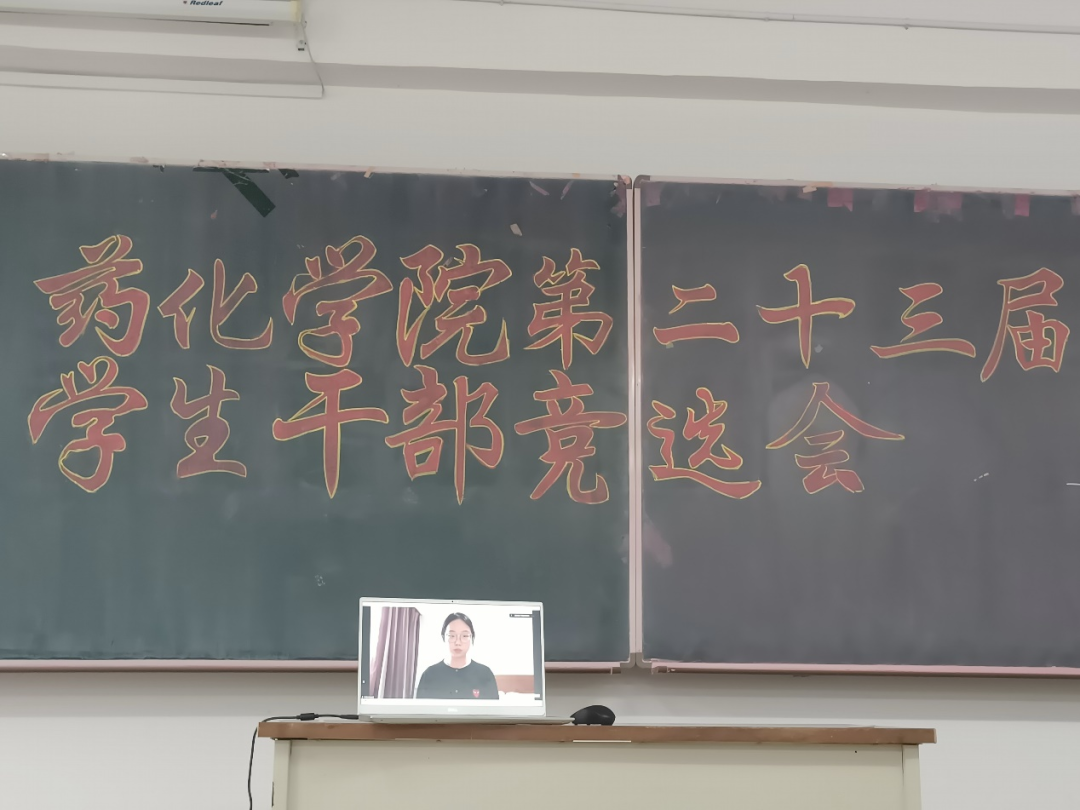 Redleaf
药化学院第二十三届
学生干部竞选会
DELL